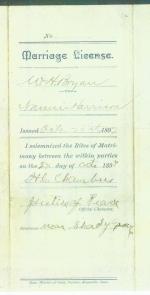 No.
Marriage License.
W. H. Bryan
Nannie Harrison
Issued Oct. 189
I solemnized the Rites of Matri-
mony between the within parties
on the day of Oct 189
H. C. Chambers
Justice of Peace
Official Character.
near Shady Grove